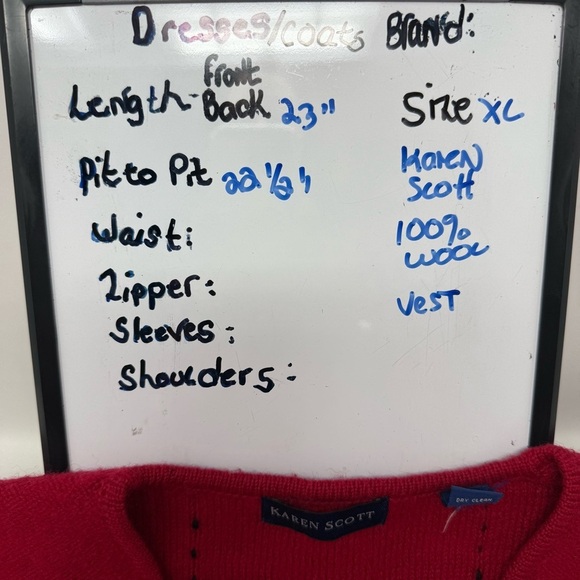 Dresses/coats Brand:
Front
Length- Back 23" Size XL
Pit to Pit 22 1/2" Karen
Scott
Waist: 100%
wool
Zipper: Vest
Sleeves:
Shoulders:
KAREN SCOTT
DRY CLEAN